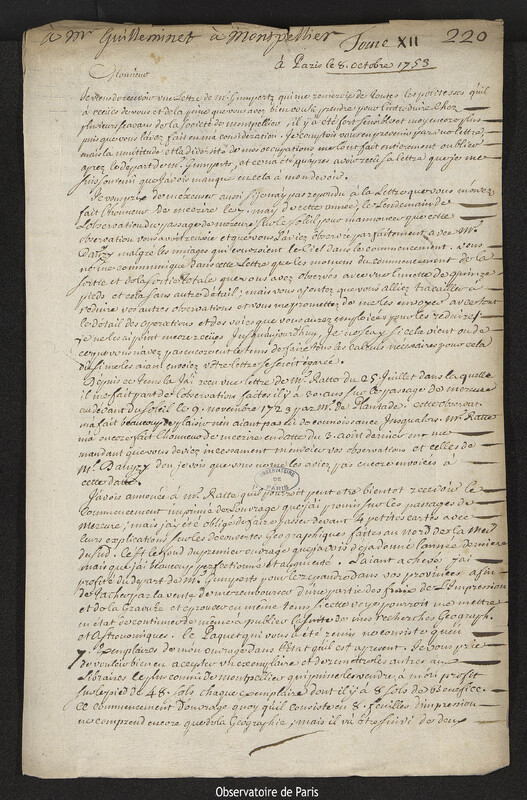 à Mr Guilleminet à Montpellier
Tome XII
220
à Paris le 8. octobre 1753
Monsieur
Je viens de recevoir une Lettre de Mr. Gumpertz qui me remercie de toutes les politesses qu'il
a reçues de vous et de la peine que vous avez bien voulu prendre pour l'introduire chez
plusieurs savans de la societé de Montpellier il y a été fort sensible et moy encore plus
puisque vous l'avez fait en ma consideration. Je comptois vous en prevenir par une lettre,
mais la multitude et la diversité de mes occupations me l'ont fait entierement oublier
aprez le départ de Mr. Gumpertz, et ce n'a été qu'aprez avoir reçu sa lettre que je me
suis souvenu que j'avois manqué en cela à mon devoir.
Je vous prie de m'excuser aussi si je n'ay pas repondu à la Lettre que vous m'avez
fait l'honneur de m'ecrire le 7. may de cette année, le Lendemain de
l'observation du passage de mercure sur le soleil pour m'annoncer que cette
observation vous avoit reussie et que vous l'aviez observée parfaitement avec Mr.
Danyzy malgré les nuages qui couvroient le Ciel dans le commencement. vous
ne me communiquez dans cette Lettre que les momens du commencement de la
sortie et de la sortie totale que vous avez observés avec une Lunette de quinze
pieds, et cela sans autre détail; mais vous ajoutez que vous alliez travailler à
reduire vos autres observations et vous me promettez de me les envoyer avec tout
le détail des operations et des voies que vous aurez employées pour les reduire;
je ne les ai point encore reçues jusqu'aujourd'huy, je ne sçay si cela vient ou de
ce que vous n'avez pas encore eu le tems de faire tous les calculs necessaires pour cela
ou si me les aiant envoiés votre lettre se seroit égarée.
Depuis ce tems là J'ai reçu une lettre de Mr. Ratte du 25 Juillet dans la quelle
il me fait part de l'observation faite il y a 30. ans sur le passage de mercure
au devant du soleil le 9. novembre 1723 par Mr. de Plantade. cette observation
m'a fait beaucoup de plaisir n'en aiant pas eu de connoissance jusqu'alors. Mr. Ratte
m'a encore fait l'honneur de m'ecrire en datte du 3. août dernier en me
mandant que vous deviez incessament m'envoier vos observations et celles de
Mr. Danyzy d'ou je vois que vous ne me les aviez pas encore envoiées à
cette datte.
J'avois annoncé à Mr. Ratte qu'il pourroit peut etre bientot recevoir le
Commencement imprimé de l'ouvrage que j'ai promis sur les passages de
Mercure; mais j'ai été obligé de faire passer devant 4 petites cartes avec
leurs explications sur les decouvertes Geographiques faites au Nord de la Mer
du Sud. c'est le fond du premier ouvrage que j'avois deja donné l'année derniere
mais que j'ai beaucoup perfectionné et augmenté. L'aiant achevé j'ai
profité du départ de Mr. Gumpertz pour le repandre dans vos provinces afin
de tacher par la vente de me rembourser d'une partie des frais de L'Impression
et de la Gravure et eprouver en même tems si cette voye pourroit me mettre
en état de continuer de même à publier la suite de mes recherches Geograph.
et Astronomiques. Le Paquet qui vous a été remis ne consiste qu'en
7. Exemplaires de mon ouvrage dans l'etat qu'il est a present. Je vous prie
de vouloir bien en accepter un exemplaire et de remettre les autres au
Libraire le plus connu de Montpellier qui puisse les vendre à mon profit
sur le pied de 48. sols chaque exemplaire dont il y a 8 sols de benefice.
ce commencement d'ouvrage quoy qu'il consiste en 8. feuilles d'impression
ne comprend encore que de la Géographie; mais il va être suivi de deux
OBSERVATOIRE DE PARIS
Observatoire de Paris